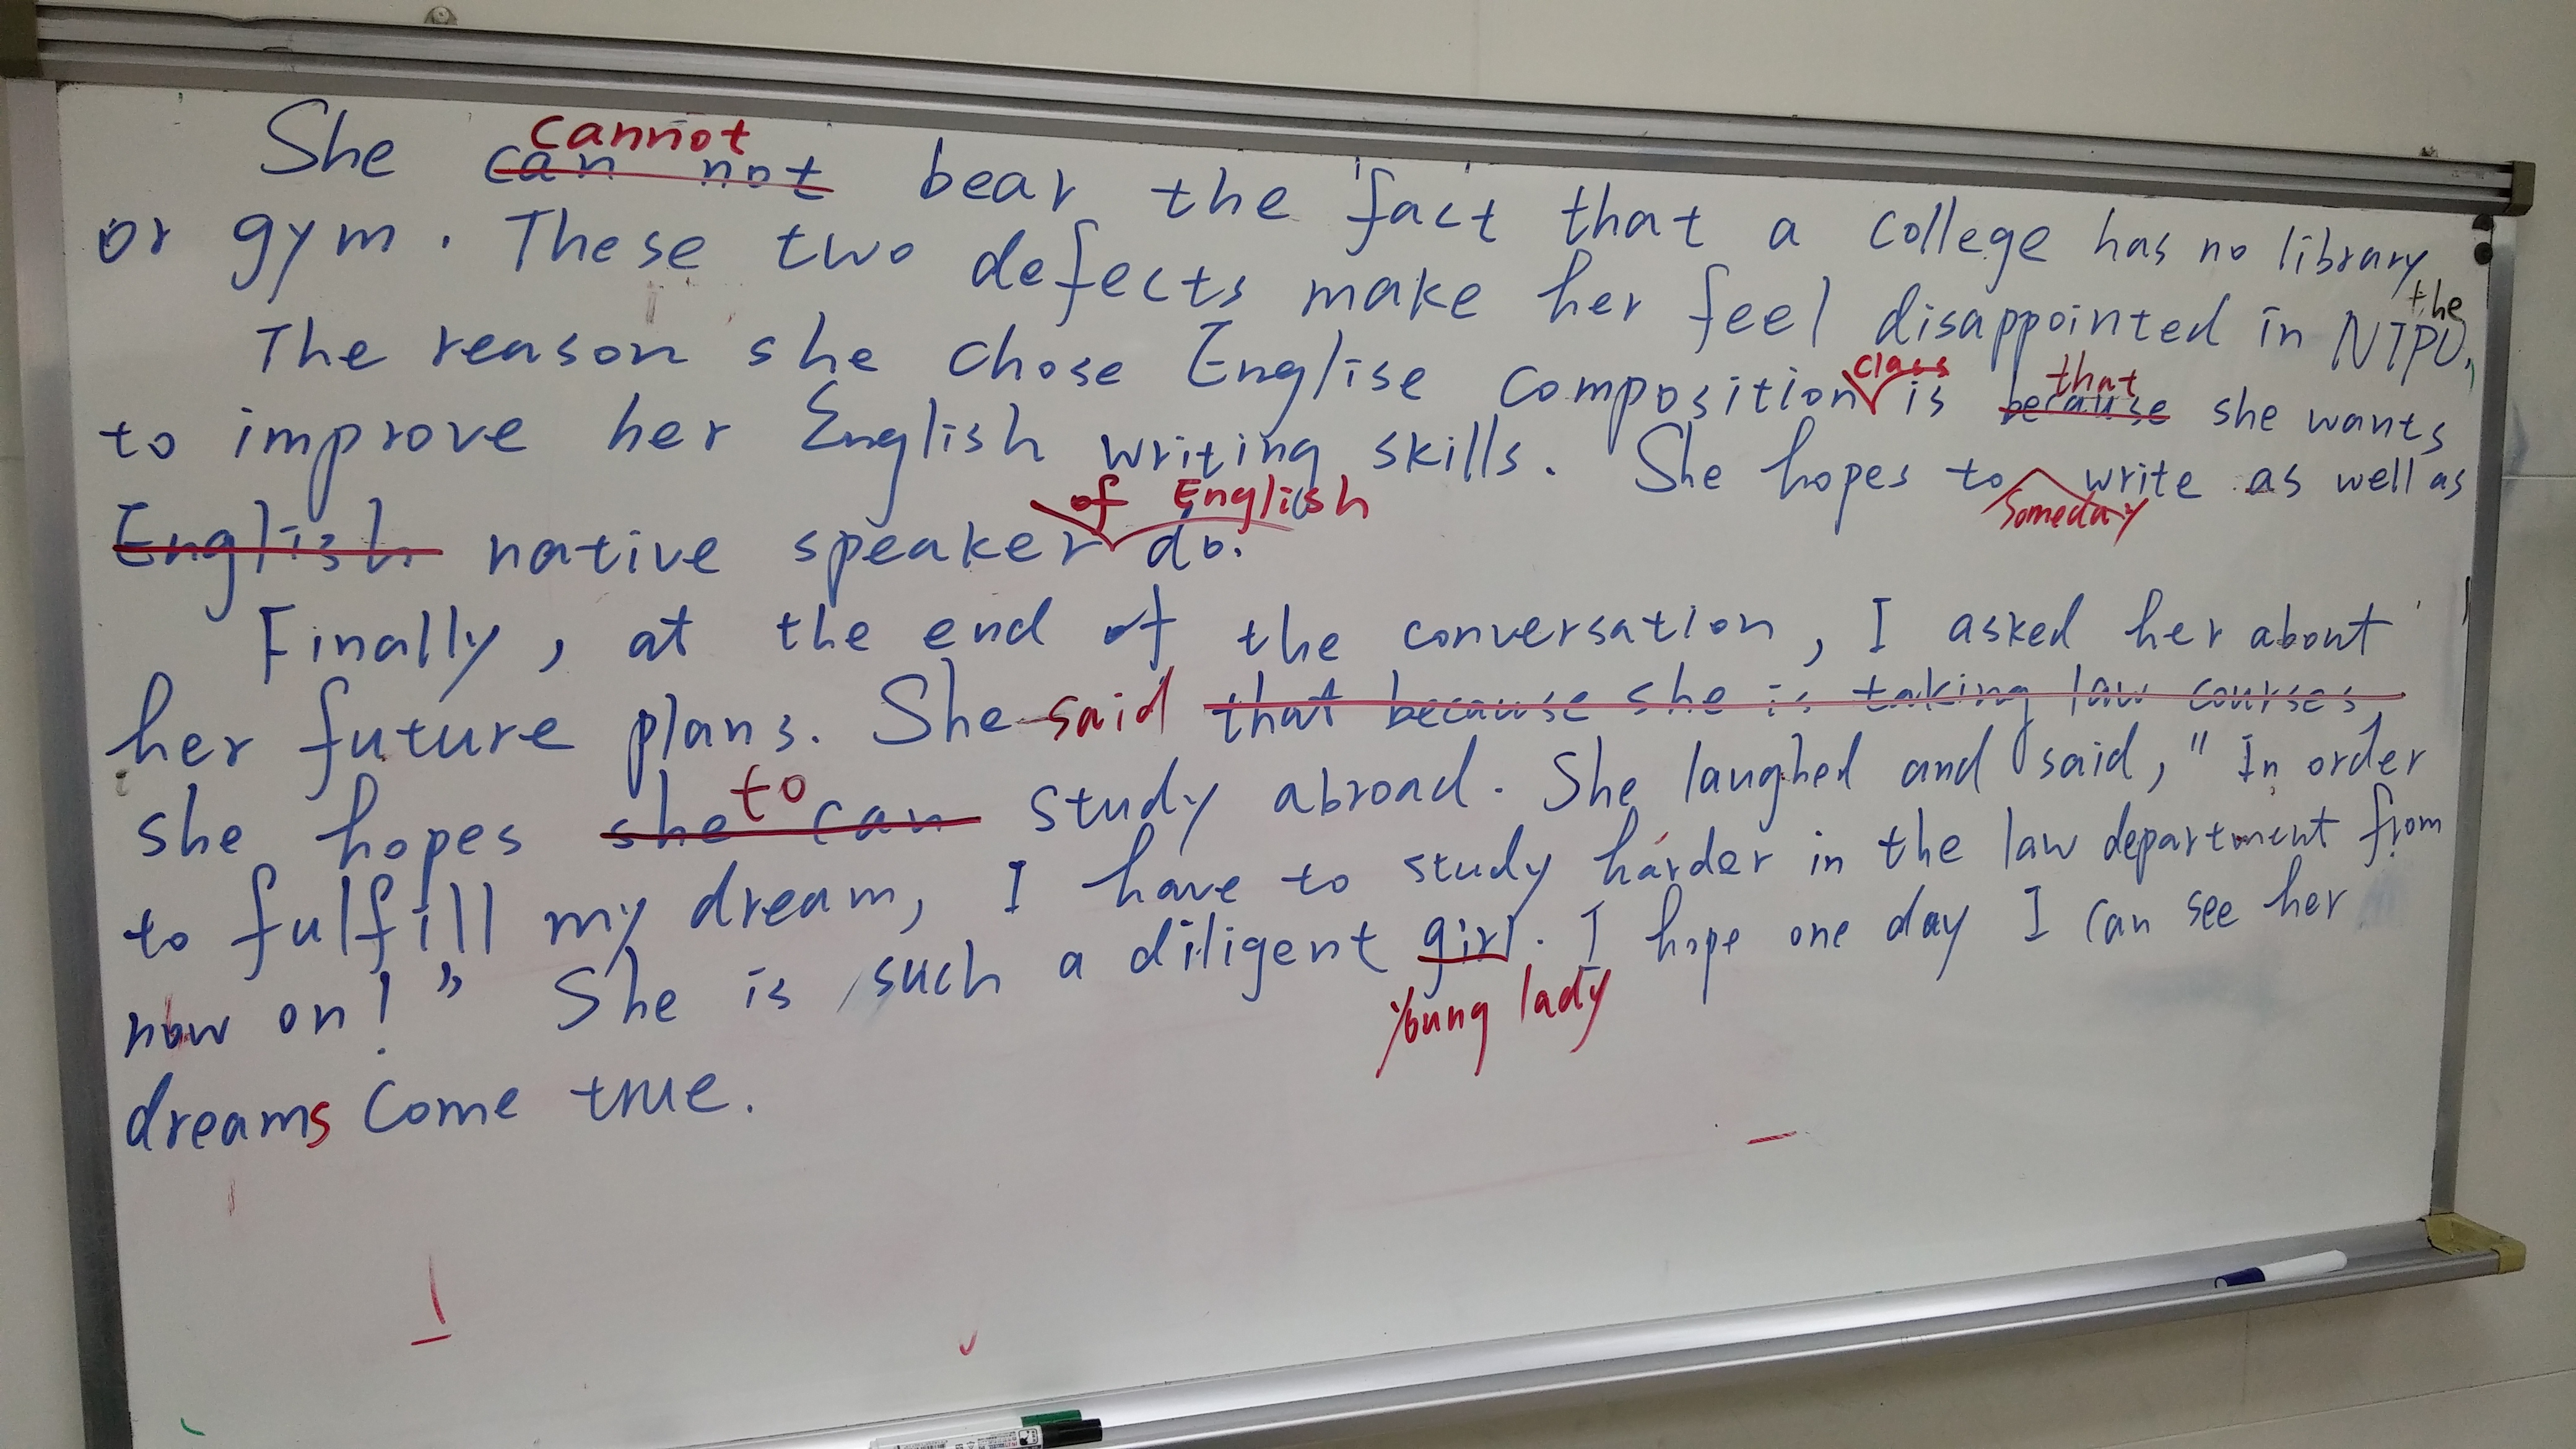 cannot
She can not bear the fact that a college has no library
or gym. These two defects make her feel disappointed in NTPU.
the
The reason she chose Englise composition is because she wants
class that
to improve her English writing skills. She hopes to write as well as
of English someday
English native speaker do.
Finally, at the end of the conversation, I asked her about
her future plans. She said that because she is taking law courses,
to
she hopes she can study abroad. She laughed and said, "In order
to fulfill my dream, I have to study harder in the law department from
now on!" She is such a diligent girl. I hope one day I can see her
young lady
dreams come true.